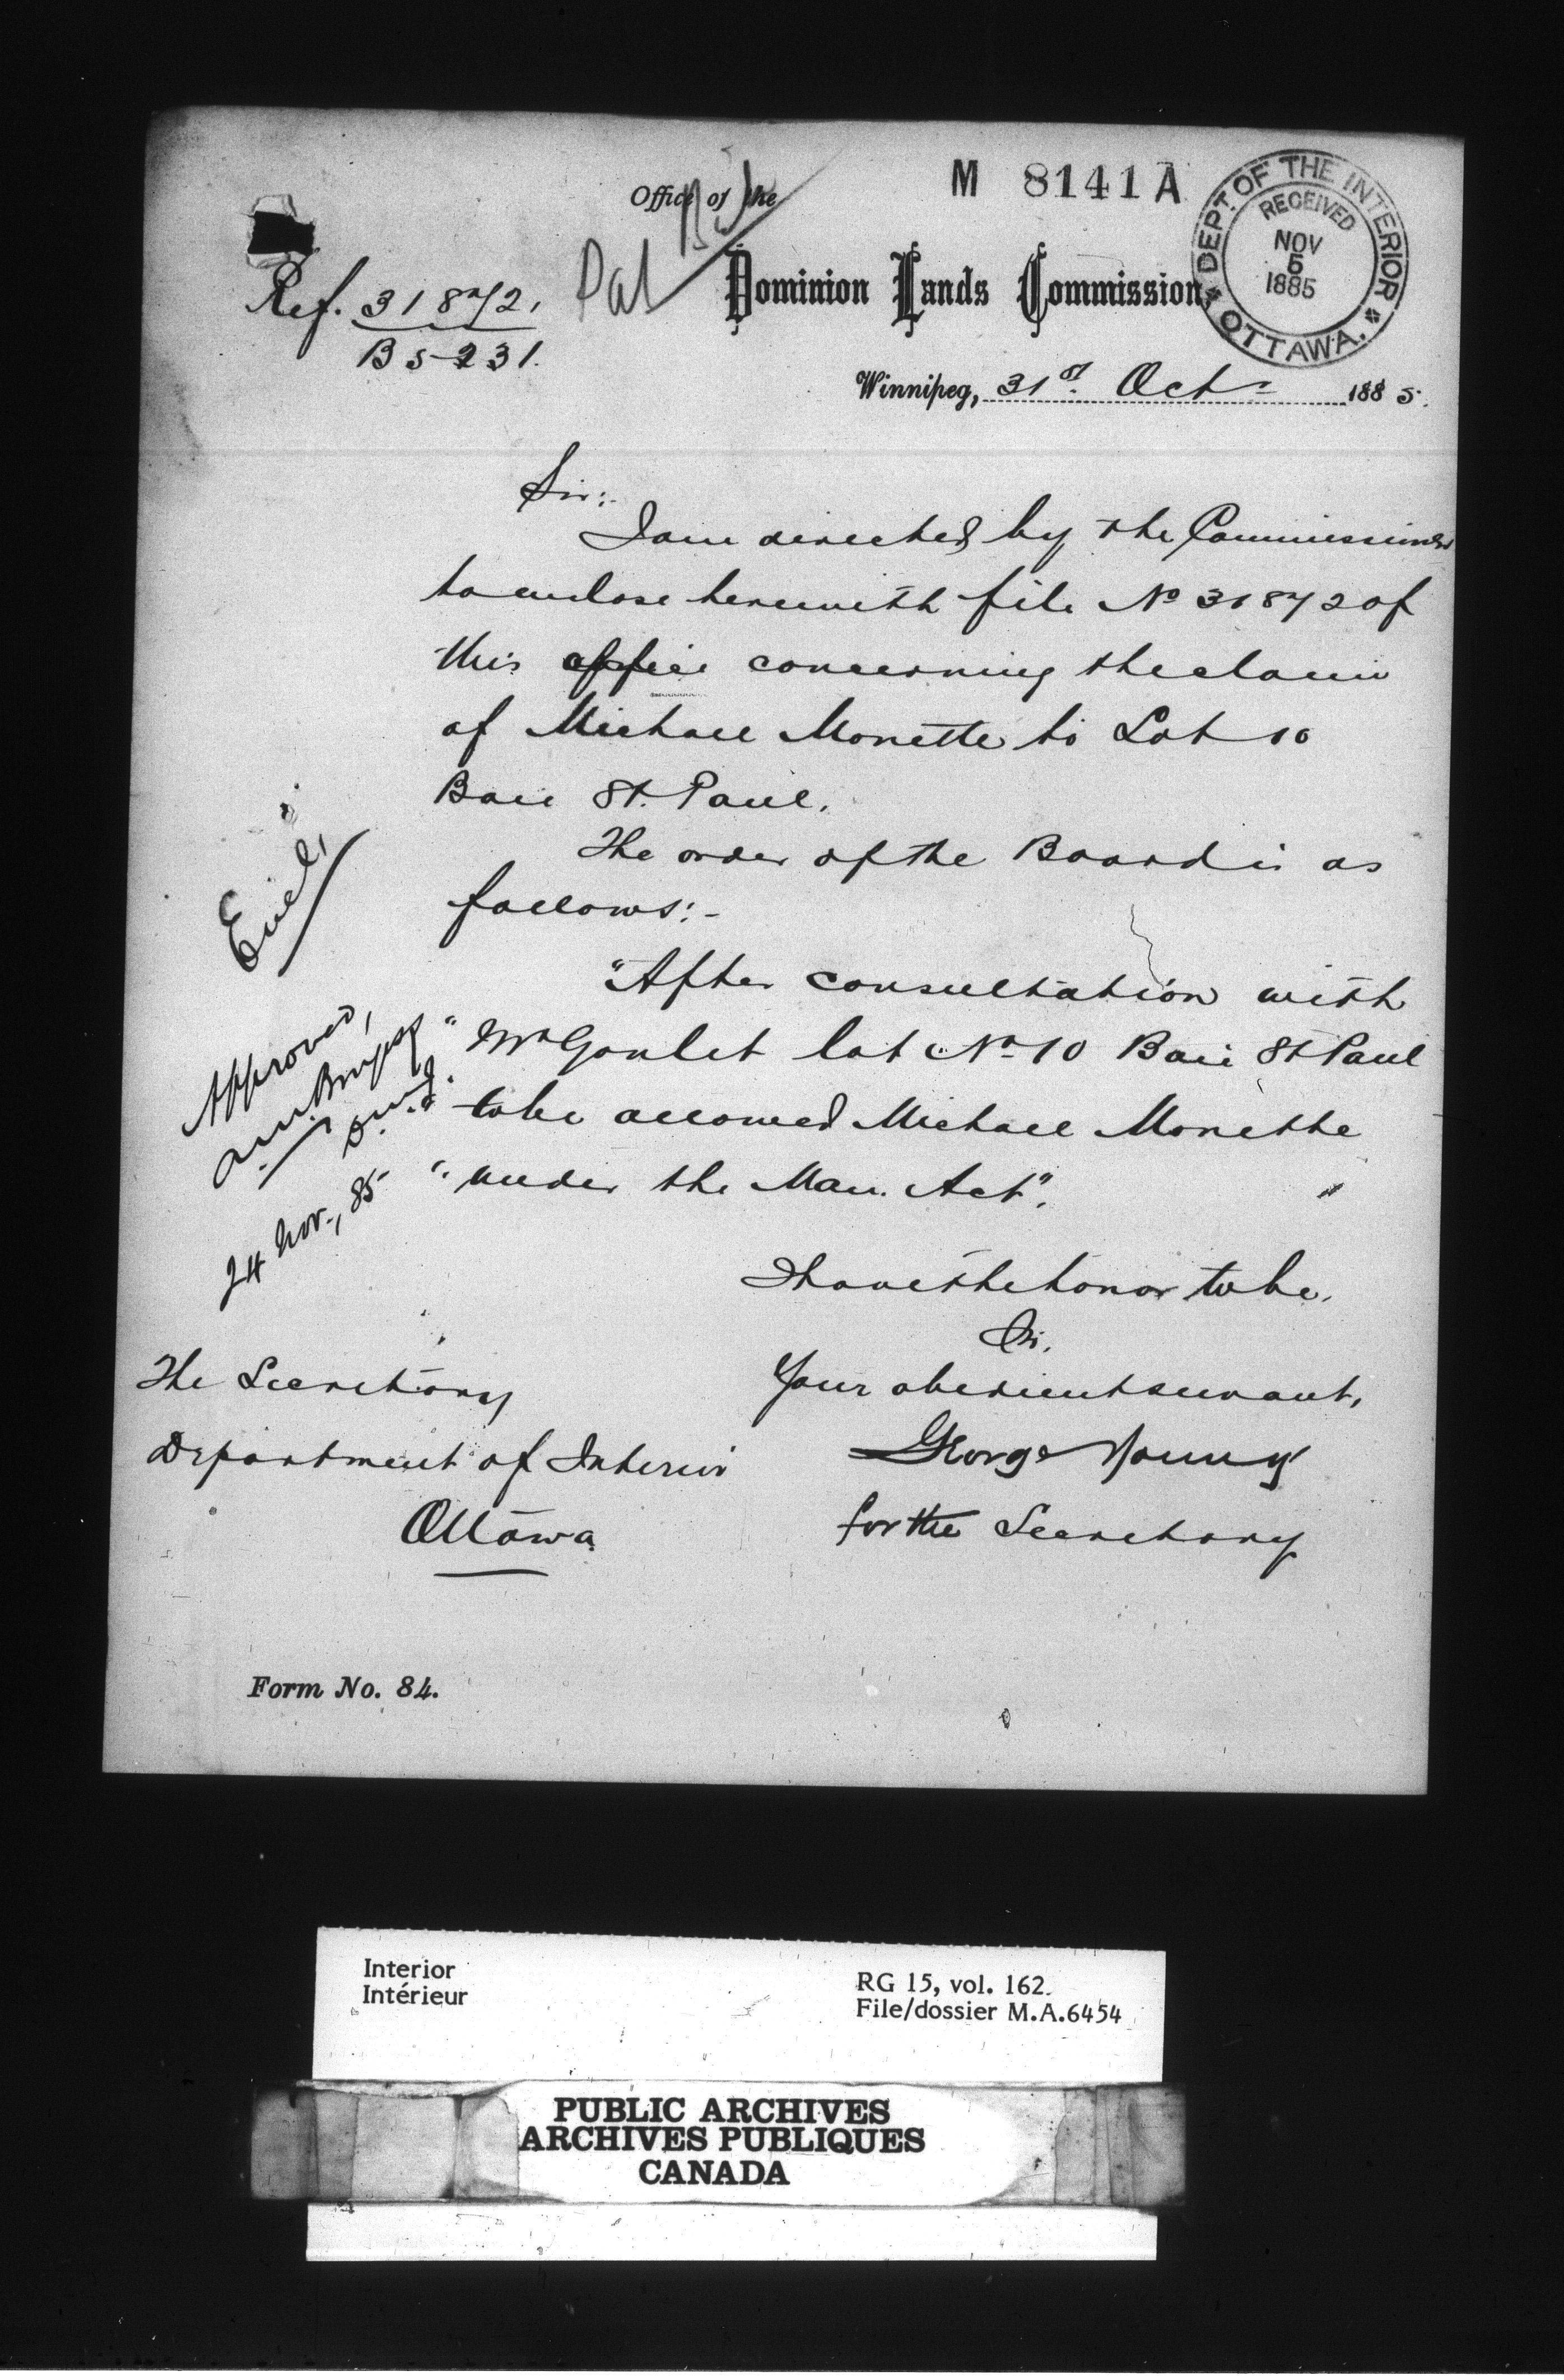 M 8141 A
DEPT. OF THE INTERIOR
RECEIVED
NOV
5
1885
OTTAWA.
Office of the
Dominion Lands Commission,
Ref. 31872,
B 5231.
Pat
Winnipeg, 31st Octr 1885.
Sir:
I am directed by the Commissioner
to enclose herewith file No 31872 of
this office concerning the claim
of Michael Monette to Lot 10
Baie St. Paul.
The order of the Board is as
follows:-
"After consultation with
" Mr Goulet lot No 10 Baie St Paul
" to be allowed Michael Monette
" under the Man. Act".
Encl,
Approved,
24 Nov., 85
I have the honor to be,
Sir,
Your obedient servant,
George Young
for the Secretary
The Secretary
Department of Interior
Ottawa
Form No. 84.
Interior
Intérieur
RG 15, vol. 162.
File/dossier M.A.6454
PUBLIC ARCHIVES
ARCHIVES PUBLIQUES
CANADA